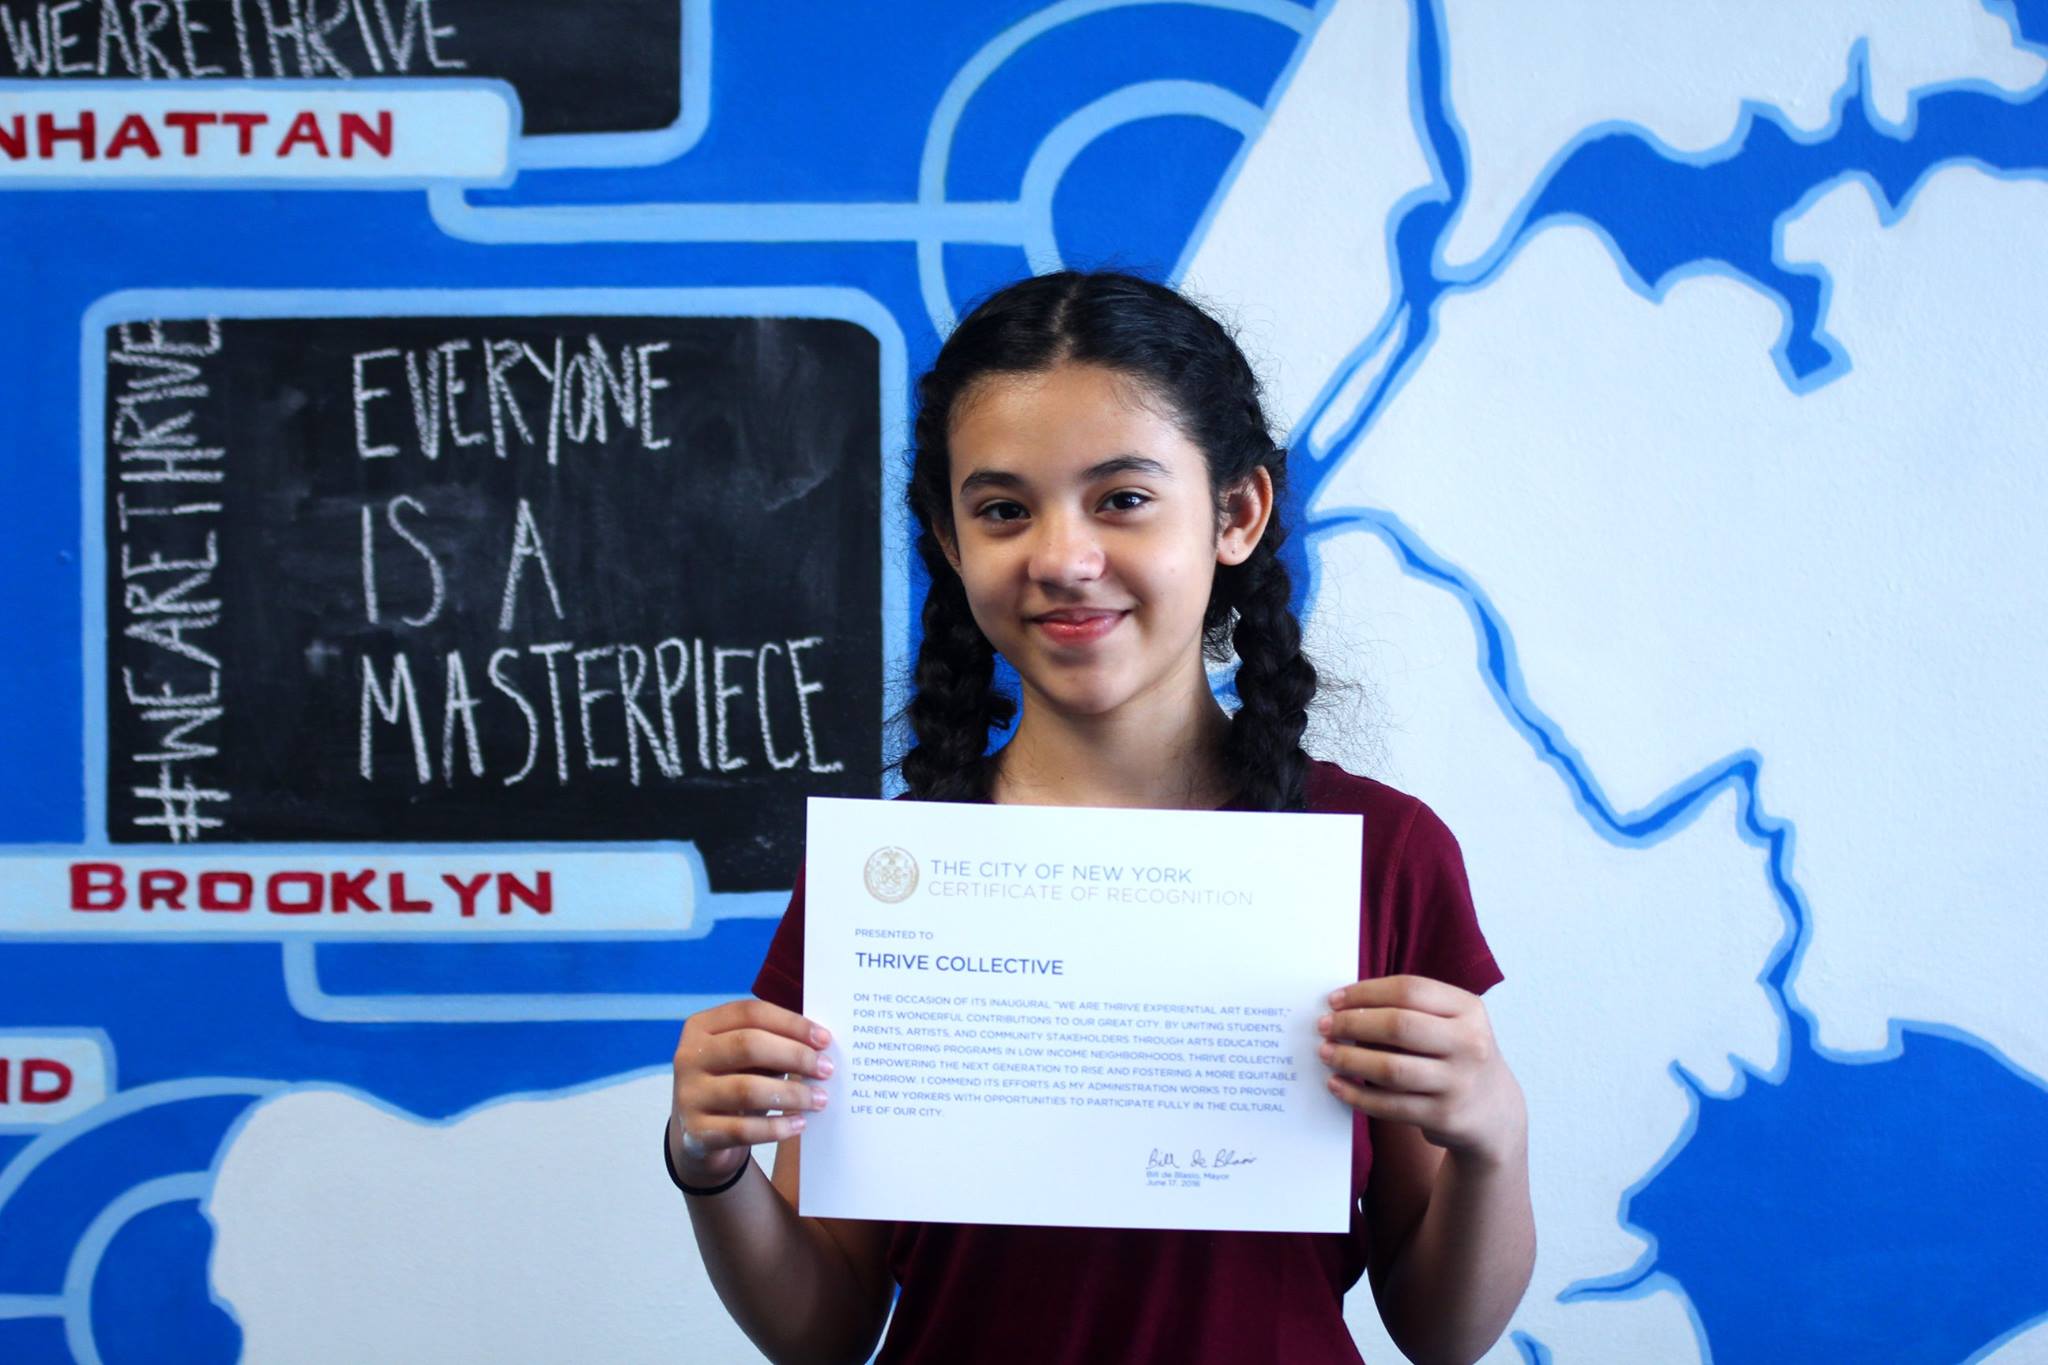 WEARETHRIVE
NHATTAN
#WEARETHRIVE
EVERYONE
IS A
MASTERPIECE
BROOKLYN
ND
THE CITY OF NEW YORK
CERTIFICATE OF RECOGNITION
PRESENTED TO
THRIVE COLLECTIVE
ON THE OCCASION OF ITS INAUGURAL "WE ARE THRIVE EXPERIENTIAL ART EXHIBIT,"
FOR ITS WONDERFUL CONTRIBUTIONS TO OUR GREAT CITY. BY UNITING STUDENTS,
PARENTS, ARTISTS, AND COMMUNITY STAKEHOLDERS THROUGH ARTS EDUCATION
AND MENTORING PROGRAMS IN LOW INCOME NEIGHBORHOODS, THRIVE COLLECTIVE
IS EMPOWERING THE NEXT GENERATION TO RISE AND FOSTERING A MORE EQUITABLE
TOMORROW. I COMMEND ITS EFFORTS AS MY ADMINISTRATION WORKS TO PROVIDE
ALL NEW YORKERS WITH OPPORTUNITIES TO PARTICIPATE FULLY IN THE CULTURAL
LIFE OF OUR CITY.
Bill de Blasio
Bill de Blasio, Mayor
June 17, 2016